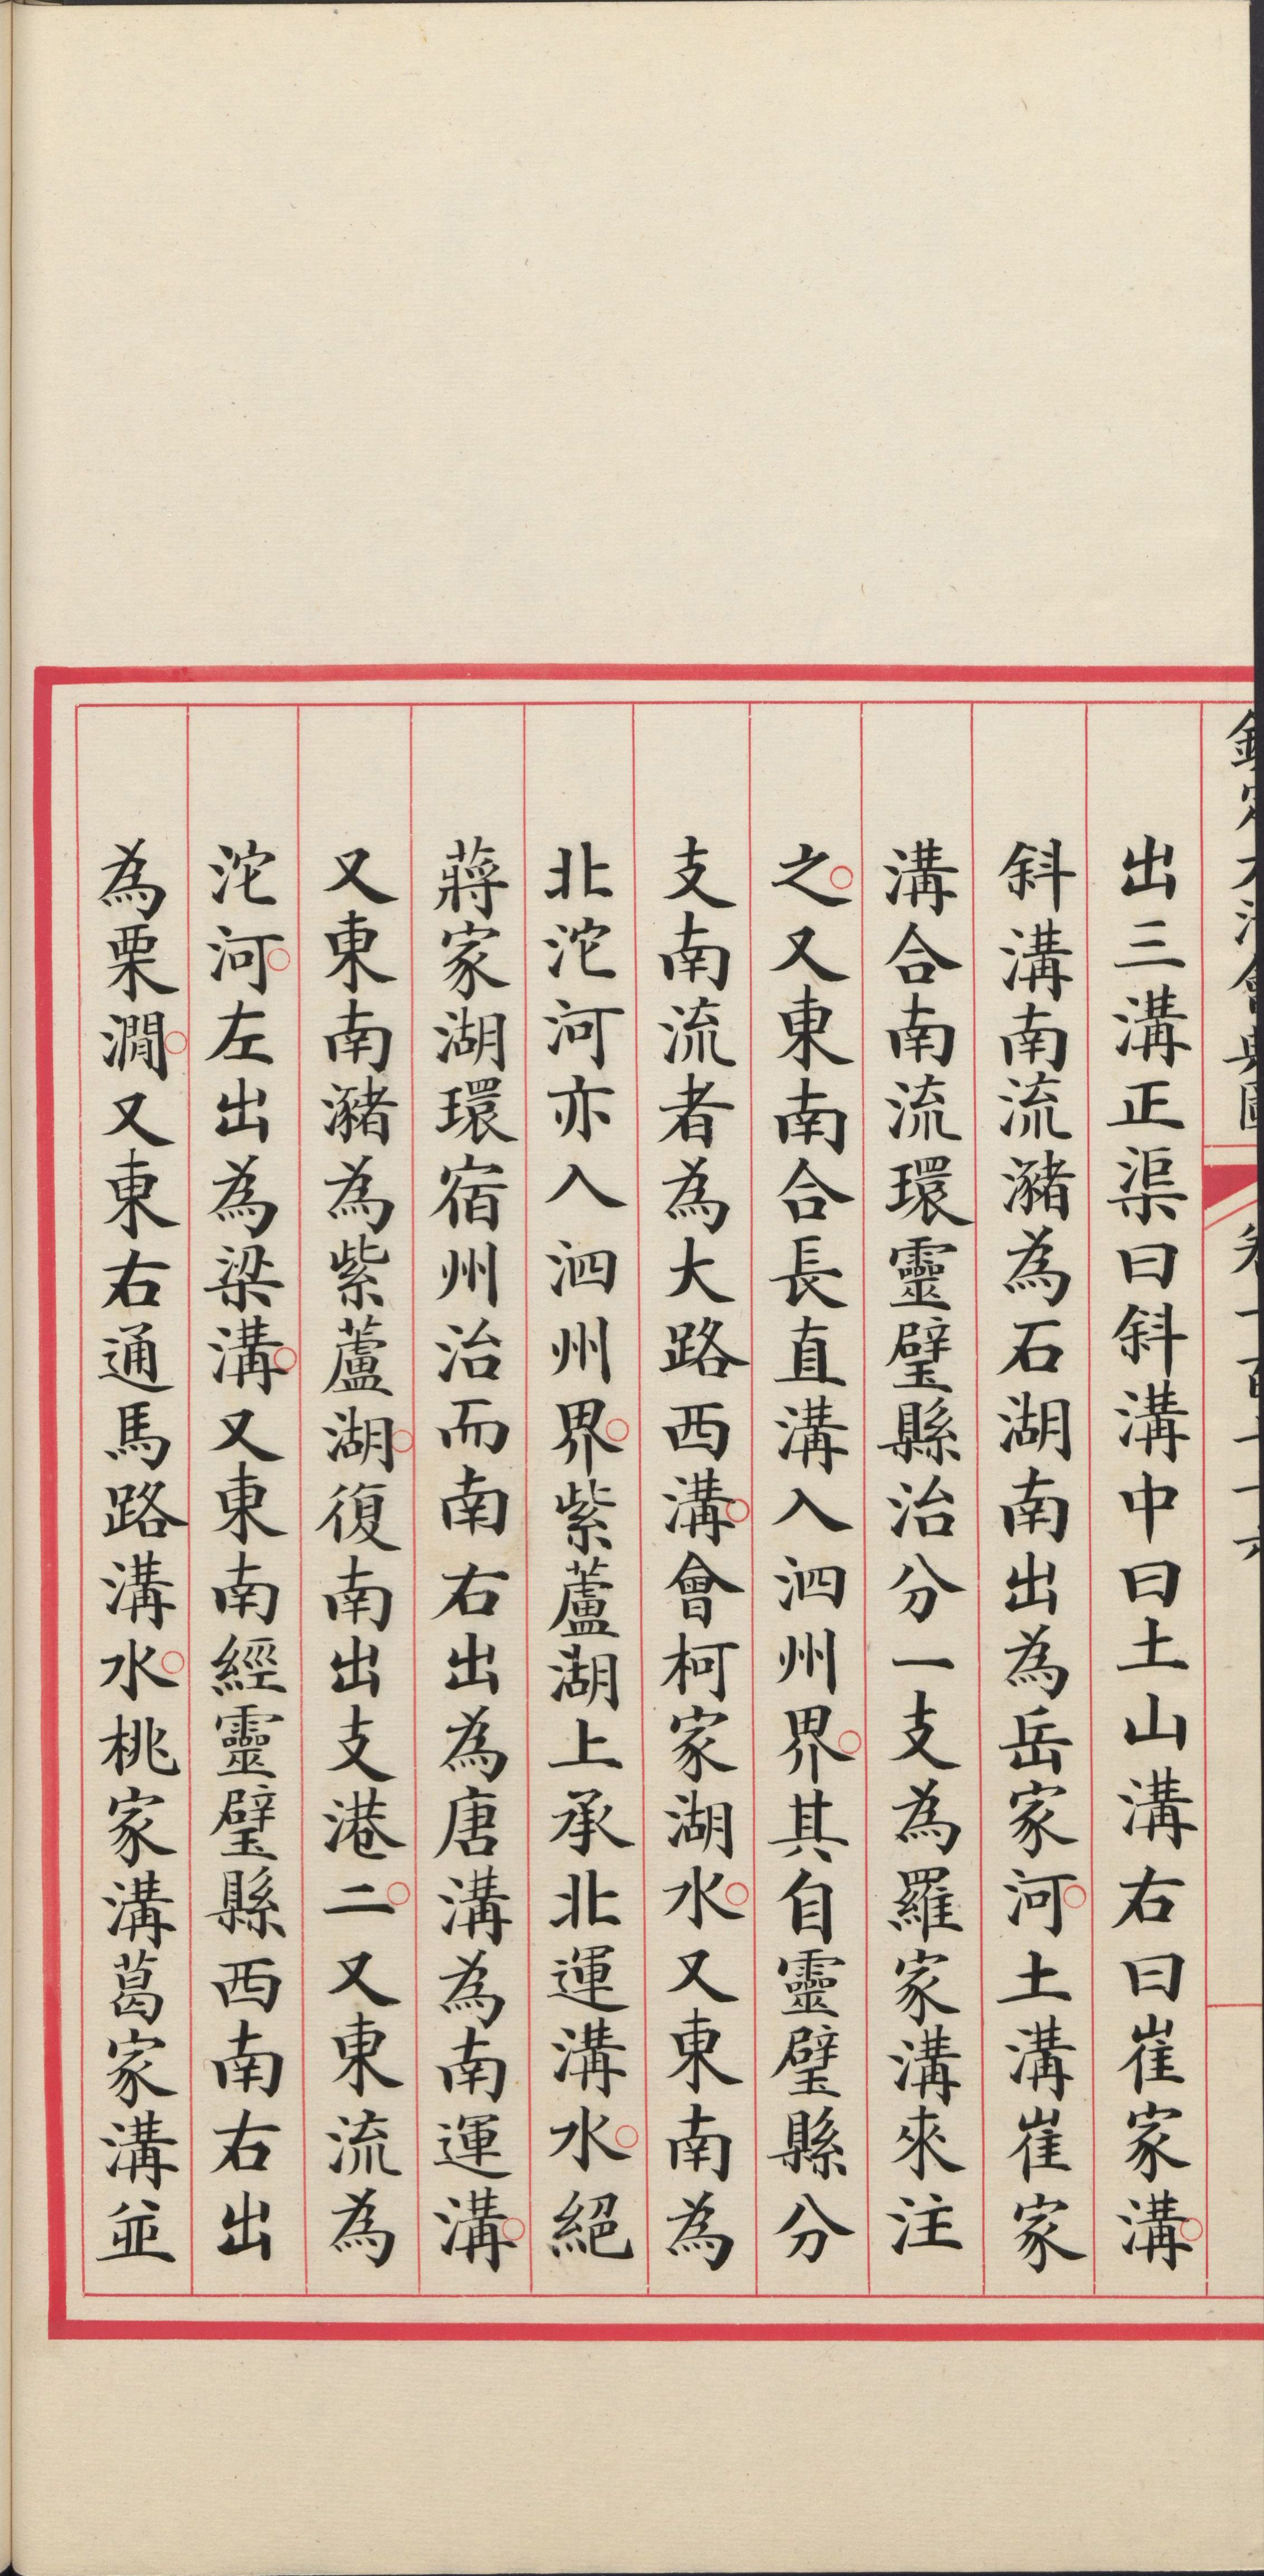 欽定大清會典圖 卷一百七十六
出三溝正渠曰斜溝中曰土山溝右曰崔家溝
斜溝南流瀦為石湖南出為岳家河土溝崔家
溝合南流環靈璧縣治分一支為羅家溝來注
之又東南合長直溝入泗州界其自靈璧縣分
支南流者為大路西溝會柯家湖水又東南為
北沱河亦入泗州界紫蘆湖上承北運溝水絕
蔣家湖環宿州治而南右出為唐溝為南運溝
又東南瀦為紫蘆湖復南出支港二又東流為
沱河左出為梁溝又東南經靈璧縣西南右出
為栗澗又東右通馬路溝水桃家溝葛家溝並